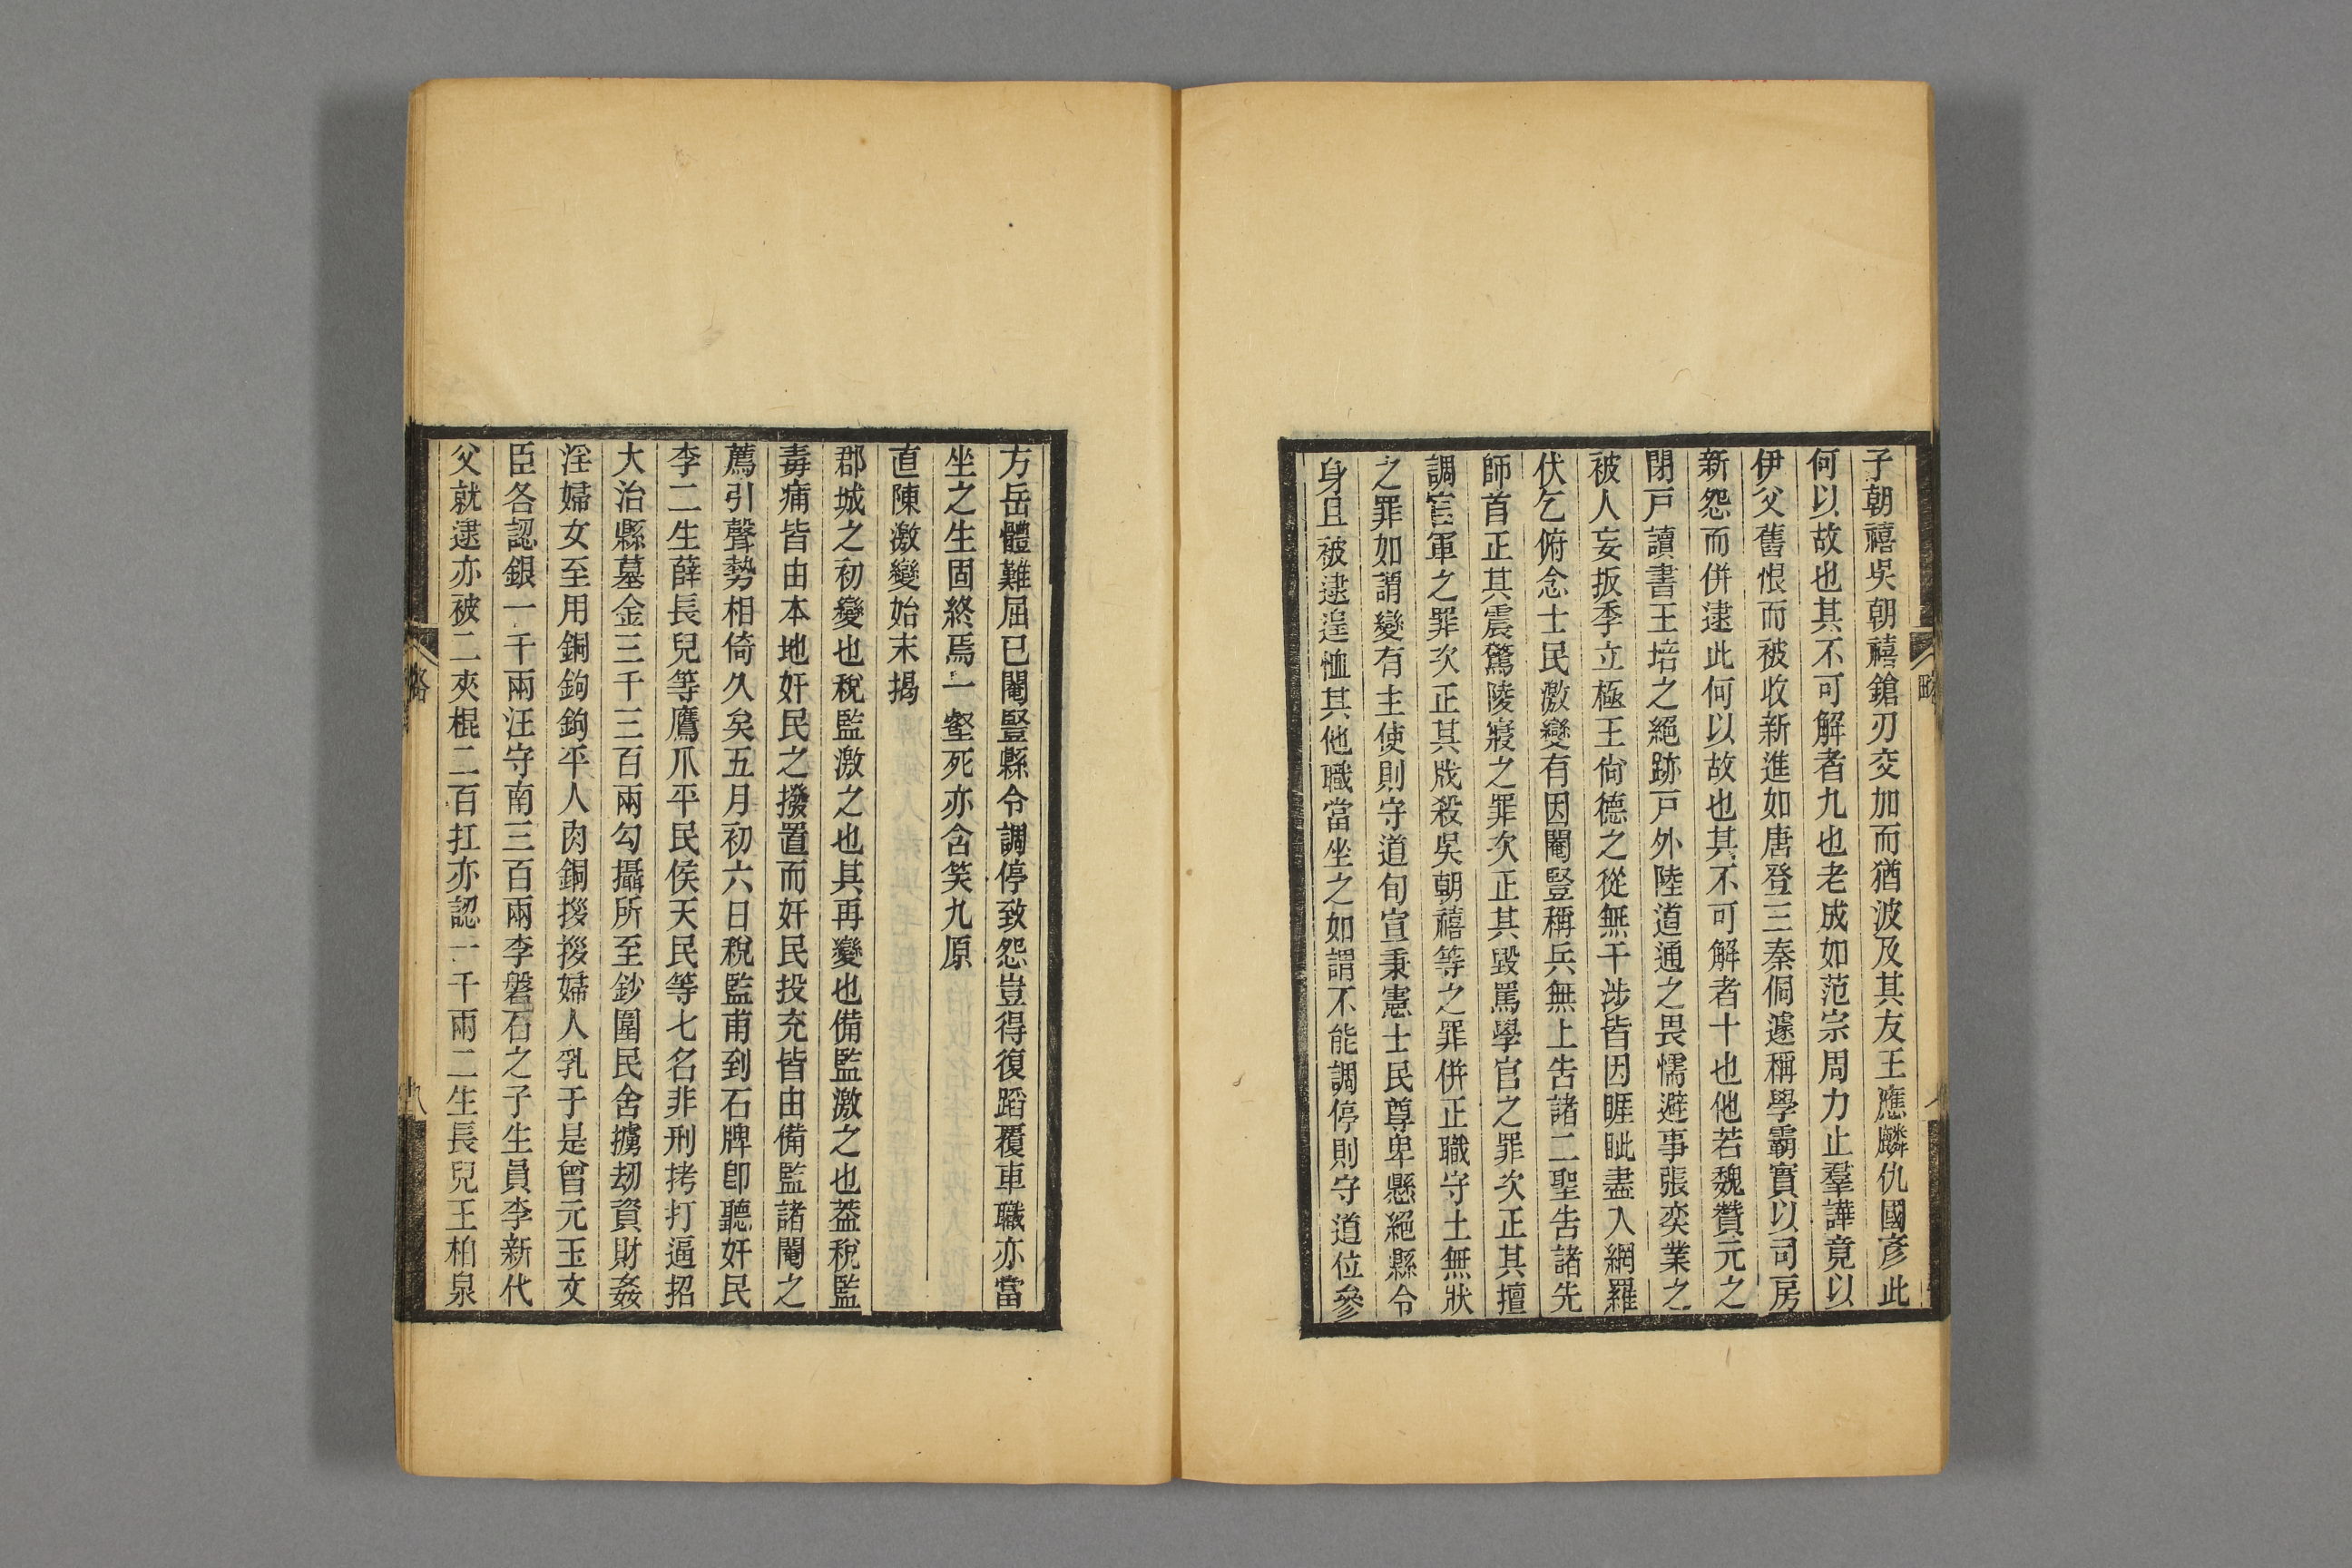 子朝禧吳朝禧鎗刃交加而猶波及其友王應麟仇國彥此
何以故也其不可解者九也老成如范宗周力止羣譁竟以
伊父舊恨而被收新進如唐登三秦侗遽稱學霸實以司房
新怨而併逮此何以故也其不可解者十也他若魏贊元之
閉戸讀書王培之絕跡戸外陸道通之畏懦避事張奕業之
被人妄扳季立極王尙德之從無干涉皆因睚眦盡入網羅
伏乞俯念士民激變有因閹豎稱兵無上告諸二聖告諸先
師首正其震驚陵寢之罪次正其毀罵學官之罪次正其擅
調官軍之罪次正其戕殺吳朝禧等之罪併正職守土無狀
之罪如謂變有主使則守道旬宣秉憲士民尊卑懸絕縣令
身且被逮遑恤其他職當坐之如謂不能調停則守道位參
方岳體難屈已閹豎縣令調停致怨豈得復蹈覆車職亦當
坐之生固終焉一壑死亦含笑九原
直陳激變始末揭
郡城之初變也稅監激之也其再變也備監激之也葢稅監
毒痡皆由本地奸民之撥置而奸民投充皆由備監諸閹之
薦引聲勢相倚久矣五月初六日稅監甫到石牌卽聽奸民
李二生薛長兒等鷹爪平民侯天民等七名非刑拷打逼招
大治縣墓金三千三百兩勾攝所至鈔圍民舍擄刼資財姦
淫婦女至用銅鉤鉤平人肉銅拶拶婦人乳于是曾元玉文
臣各認銀一千兩汪守南三百兩李磐石之子生員李新代
父就逮亦被二夾棍二百扛亦認一千兩二生長兒王柏泉
略
九八